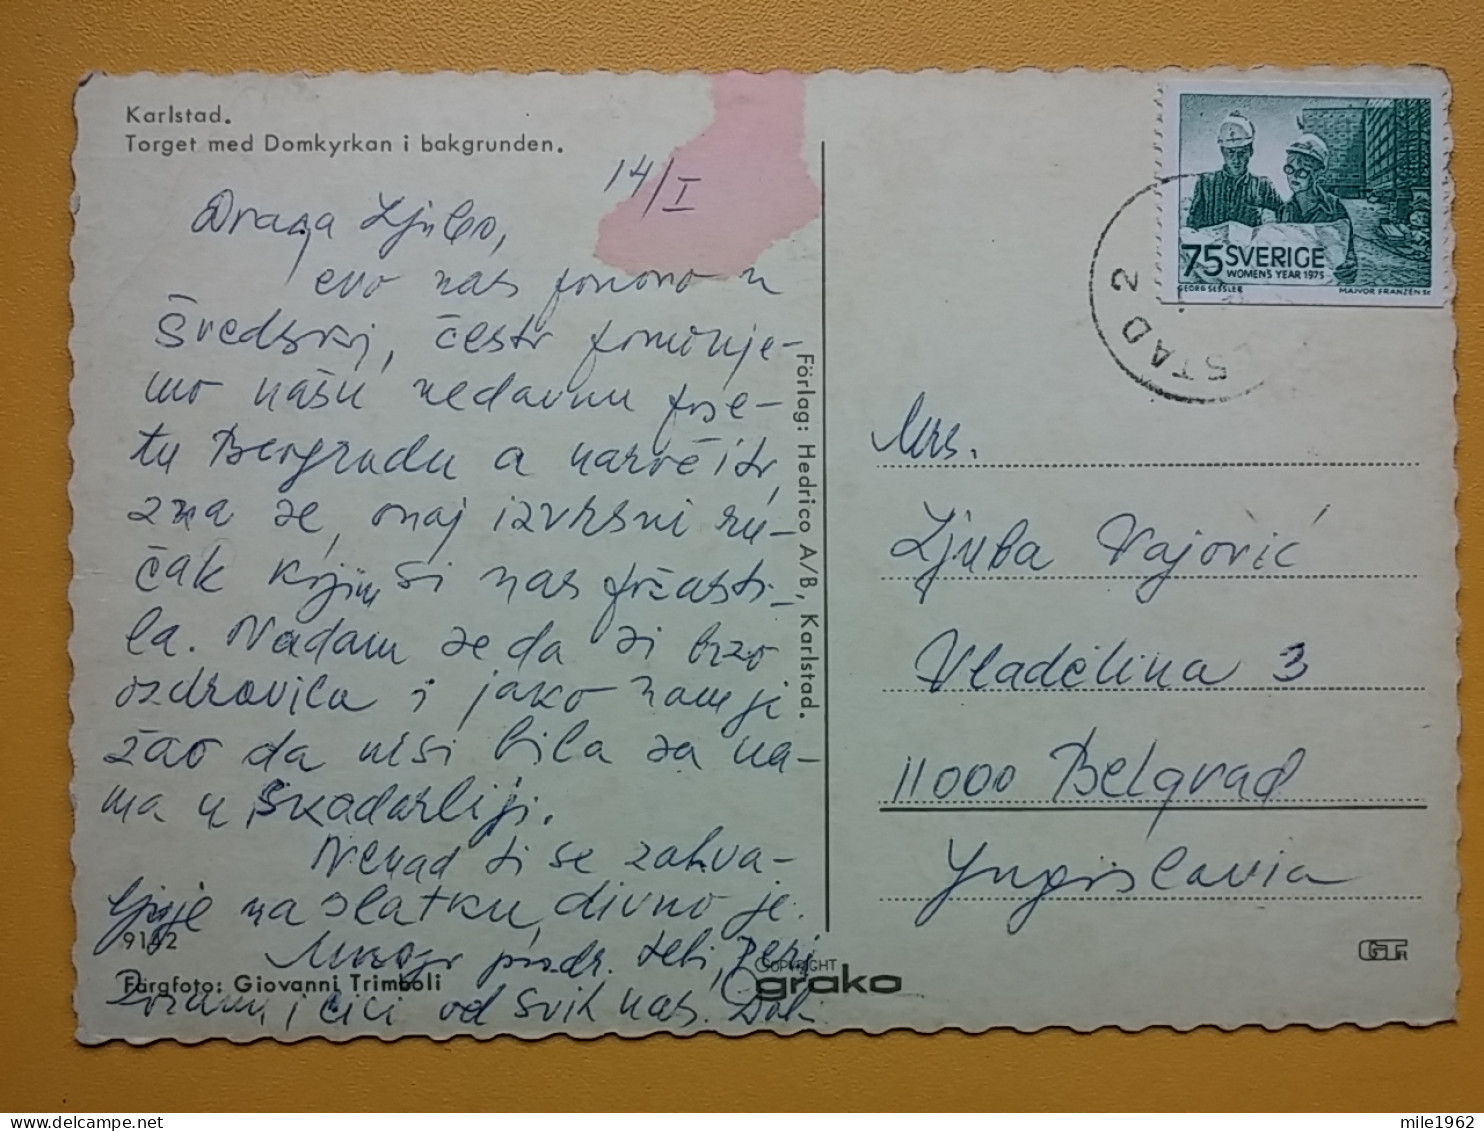 Karlstad.
Torget med Domkyrkan i bakgrunden.
14/I
Draga Ljubo,
evo nas ponovo u
Švedskoj, često pominje-
mo našu nedavnu pose-
tu Beogradu a naročito,
zna se, onaj izvrsni ru-
čak kojim si nas počasti-
la. Nadam se da si brzo
ozdravila i jako nam je
žao da nisi bila sa na-
ma u Skadarliji.
Nenad ti se zahva-
ljuje na slatku, divno je.
Mnogo pozdr. tebi, Peri,
i Cici od svih nas.
9162
Färgfoto: Giovanni Trimboli
Förlag: Hedrico A/B, Karlstad.
COPYRIGHT
grako
75 SVERIGE
WOMEN'S YEAR 1975
GEORG SESSLER MAJVOR FRANZÉN SC
STAD 2
Mrs.
Ljuba Vajović
Vladetina 3
11000 Belgrad
Yugoslavia
mile1962